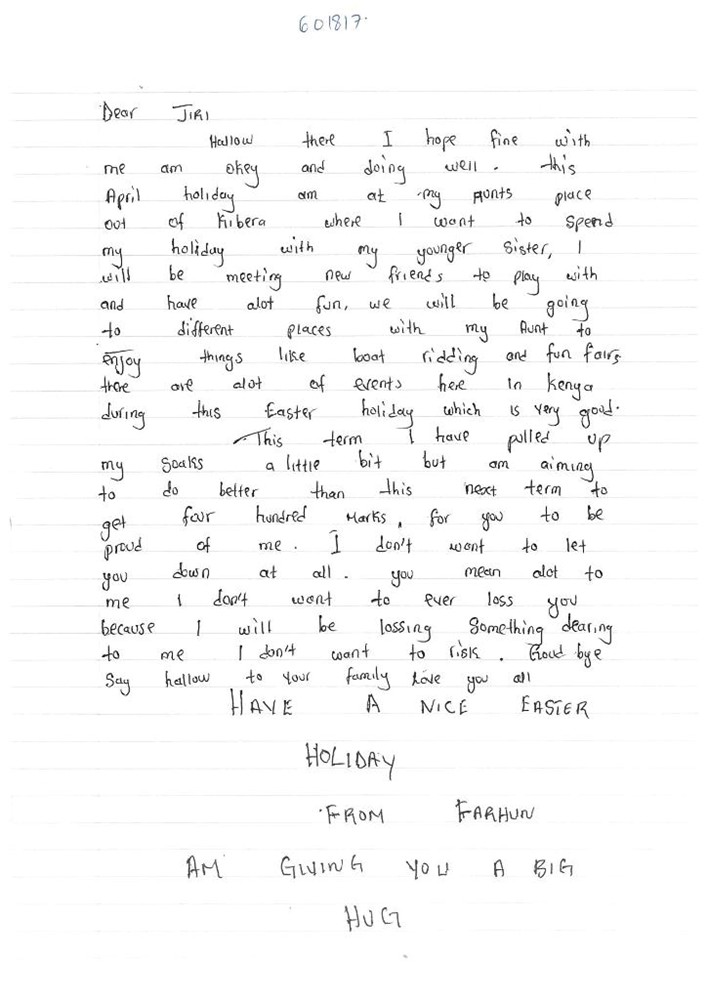 601817.
Dear JIRI
Hallow there I hope fine with
me am okey and doing well. this
April holiday am at my Aunts place
out of Kibera where I want to spend
my holiday with my younger sister, I
will be meeting new friends to play with
and have alot fun, we will be going
to different places with my Aunt to
enjoy things like boat ridding and fun fairs
there are alot of events here in Kenya
during this Easter holiday which is very good.
This term I have pulled up
my soaks a little bit but am aiming
to do better than this next term to
get four hundred Marks, for you to be
proud of me. I don't want to let
you down at all. you mean alot to
me I don't want to ever loss you
because I will be lossing something dearing
to me I don't want to risk. Good bye
Say hallow to your family love you all
HAVE A NICE EASTER
HOLIDAY
FROM FARHUN
AM GIVING YOU A BIG
HUG